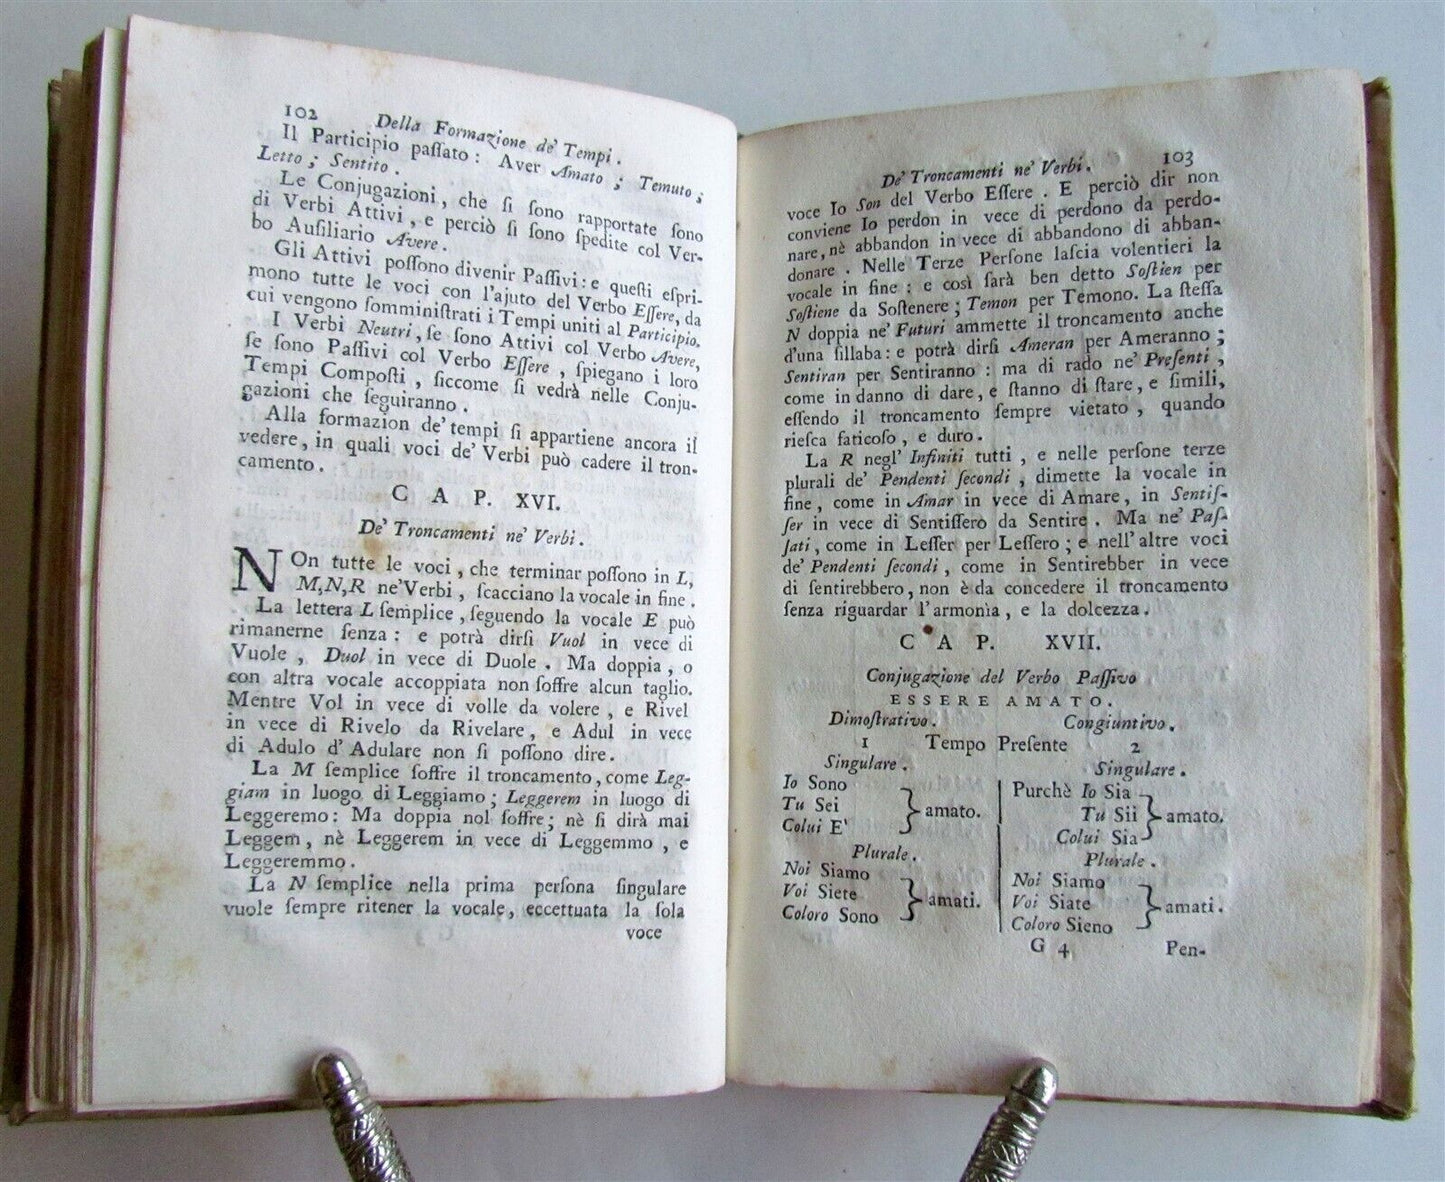 102 Della Formazione de' Tempi.
Il Participio paſſato: Aver Amato; Temuto;
Letto; Sentito.
Le Conjugazioni, che ſi ſono rapportate ſono
di Verbi Attivi, e perciò ſi ſono ſpedite col Ver-
bo Auſiliario Avere.
Gli Attivi poſſono divenir Paſſivi: e queſti eſpri-
mono tutte le voci con l'ajuto del Verbo Eſſere, da
cui vengono ſomminiſtrati i Tempi uniti al Participio.
I Verbi Neutri, ſe ſono Attivi col Verbo Avere,
ſe ſono Paſſivi col Verbo Eſſere, ſpiegano i loro
Tempi Compoſti, ſiccome ſi vedrà nelle Conju-
gazioni che ſeguiranno.
Alla formazion de' tempi ſi appartiene ancora il
vedere, in quali voci de' Verbi può cadere il tron-
camento.
CAP. XVI.
De' Troncamenti ne' Verbi.
NOn tutte le voci, che terminar poſſono in L,
M, N, R ne' Verbi, ſcacciano la vocale in fine.
La lettera L ſemplice, ſeguendo la vocale E può
rimanerne ſenza: e potrà dirſi Vuol in vece di
Vuole, Duol in vece di Duole. Ma doppia, o
con altra vocale accoppiata non ſoffre alcun taglio.
Mentre Vol in vece di volle da volere, e Rivel
in vece di Rivelo da Rivelare, e Adul in vece
di Adulo d'Adulare non ſi poſſono dire.
La M ſemplice ſoffre il troncamento, come Leg-
giam in luogo di Leggiamo; Leggerem in luogo di
Leggeremo: Ma doppia nol ſoffre; nè ſi dirà mai
Leggem, nè Leggerem in vece di Leggemmo, e
Leggeremmo.
La N ſemplice nella prima perſona ſingulare
vuole ſempre ritener la vocale, eccettuata la ſola
voce
De' Troncamenti ne' Verbi. 103
voce Io Son del Verbo Eſſere. E perciò dir non
conviene Io perdon in vece di perdono da perdo-
nare, nè abbandon in vece di abbandono di abban-
donare. Nelle Terze Perſone laſcia volentieri la
vocale in fine: e così ſarà ben detto Soſtien per
Soſtiene da Soſtenere; Temon per Temono. La ſteſſa
N doppia ne' Futuri ammette il troncamento anche
d'una ſillaba: e potrà dirſi Ameran per Ameranno;
Sentiran per Sentiranno: ma di rado ne' Preſenti,
come in danno di dare, e ſtanno di ſtare, e ſimili,
eſſendo il troncamento ſempre vietato, quando
rieſca faticoſo, e duro.
La R negl' Infiniti tutti, e nelle perſone terze
plurali de' Pendenti ſecondi, dimette la vocale in
fine, come in Amar in vece di Amare, in Sentiſ-
ſer in vece di Sentiſſero da Sentire. Ma ne' Paſ-
ſati, come in Leſſer per Leſſero; e nell'altre voci
de' Pendenti ſecondi, come in Sentirebber in vece
di ſentirebbero, non è da concedere il troncamento
ſenza riguardar l'armonìa, e la dolcezza.
CAP. XVII.
Conjugazione del Verbo Paſſivo
ESSERE AMATO.
Dimoſtrativo. Congiuntivo.
1 Tempo Preſente 2
Singulare. Singulare.
Io Sono Purchè Io Sia
Tu Sei amato. Tu Sii amato.
Colui E' Colui Sia
Plurale. Plurale.
Noi Siamo Noi Siamo
Voi Siete amati. Voi Siate amati.
Coloro Sono Coloro Sieno
G 4 Pen-